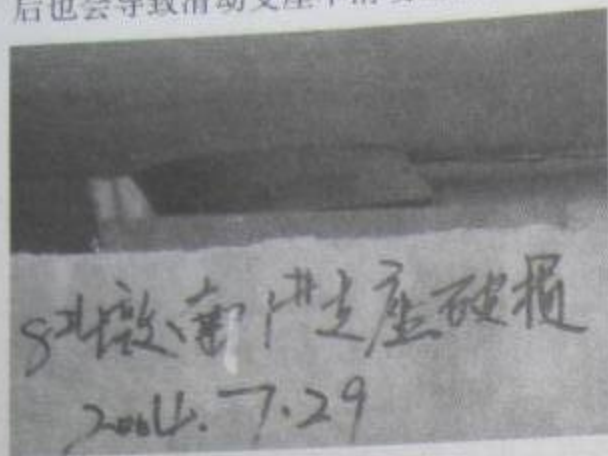 后也会导致滑动支座不滑动
墩南1#支座破损
2004.7.29